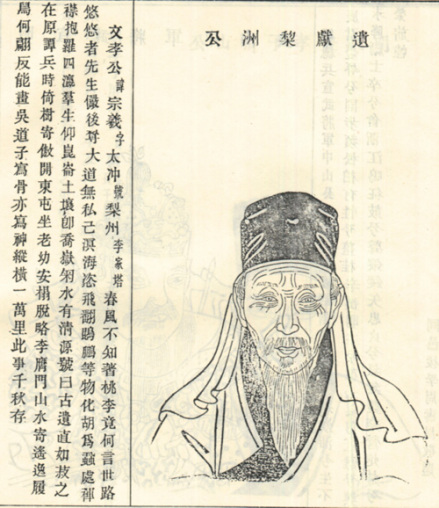 遺獻梨洲公
文孝公諱宗羲字太冲號梨州李家塔 春風不知著桃李竟何言世路
悠悠者先生儼後尊大道無私己溟海恣飛翻鵾鵬等物化胡爲蝨處褌
襟抱羅四瀛羣生仰崑崙土壤卽喬嶽匊水有清源號曰古遺直如菽之
在原譚兵時倚樹寄傲開東屯坐老幼安榻脫略李膺門山水寄遙遙履
舄何翩反能畫吳道子寫骨亦寫神縱橫一萬里此事千秋存